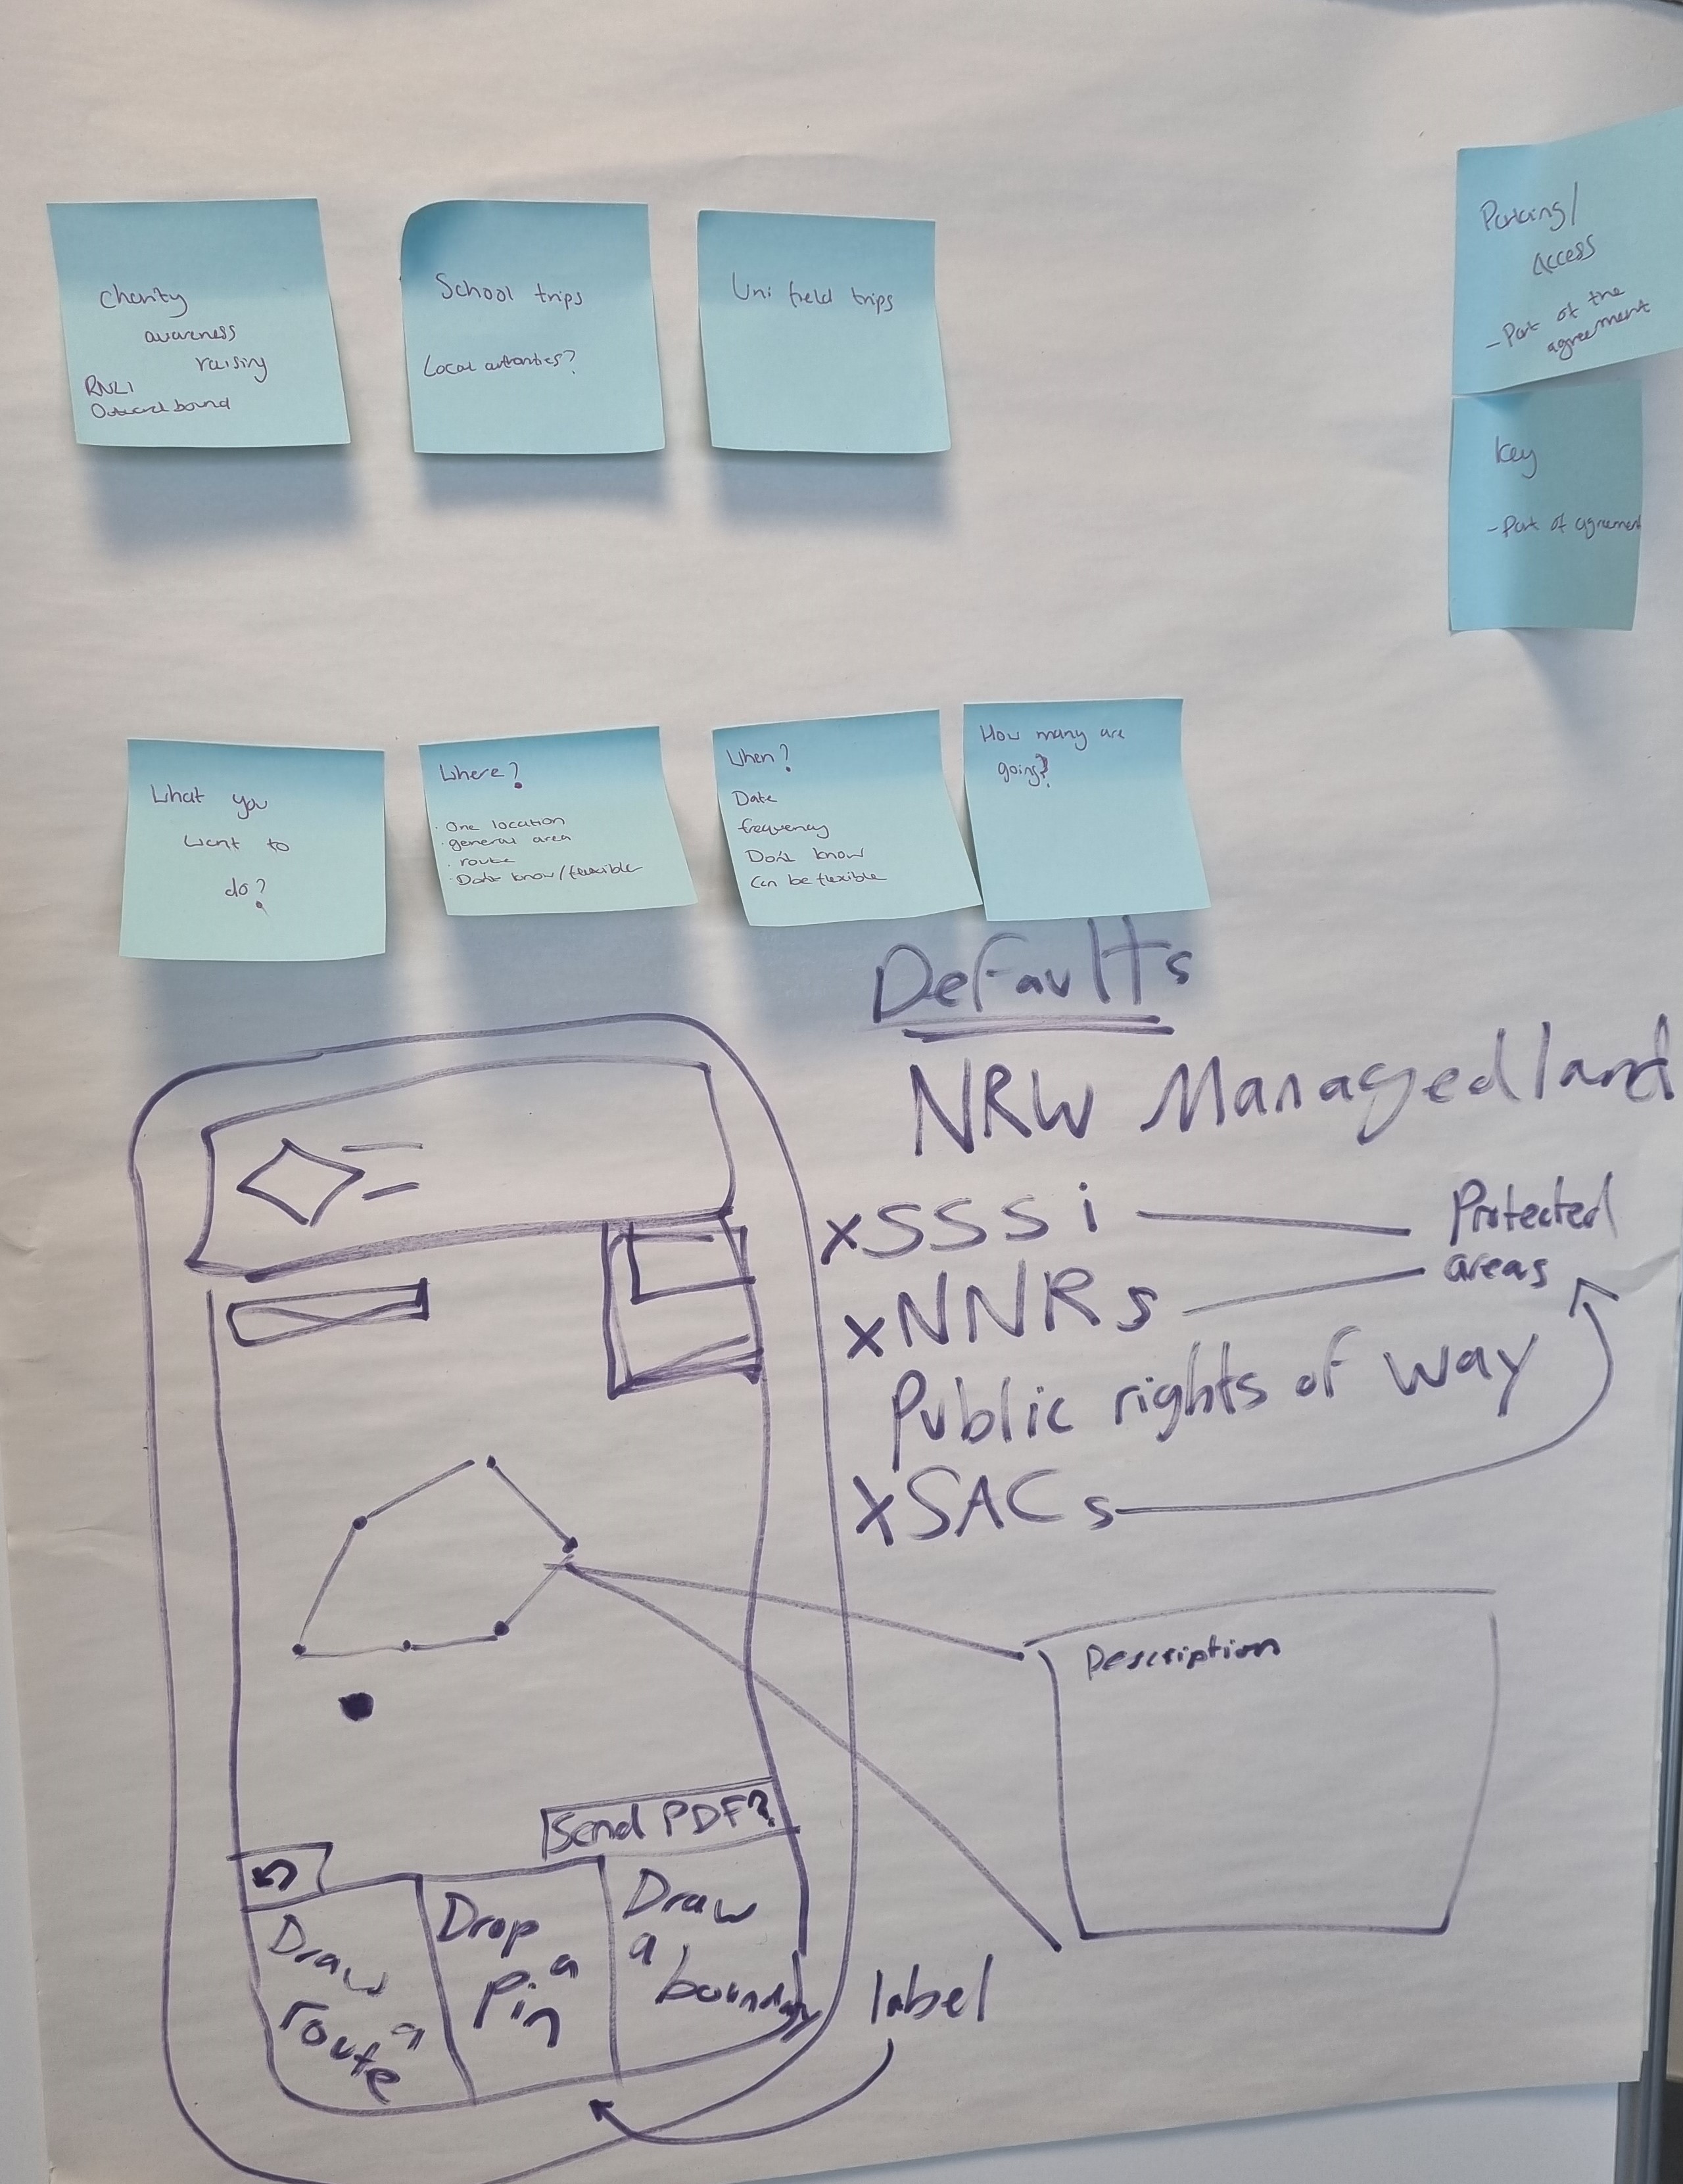 Charity
awareness
raising
RNLI
Outward bound
School trips
Local authorities?
Uni field trips
Parking/
access
- Part of the
agreement
key
- Part of agreement
What you
want to
do?
Where?
· One location
· general area
· route
· Don't know/flexible
When?
Date
frequency
Don't know
Can be flexible
How many are
going?
Defaults
NRW Managed land
xSSSi
Protected
areas
xNNRs
Public rights of way
xSACs
Description
Send PDF?
Draw
a
route
Drop
a
pin
Draw
a
boundary
label